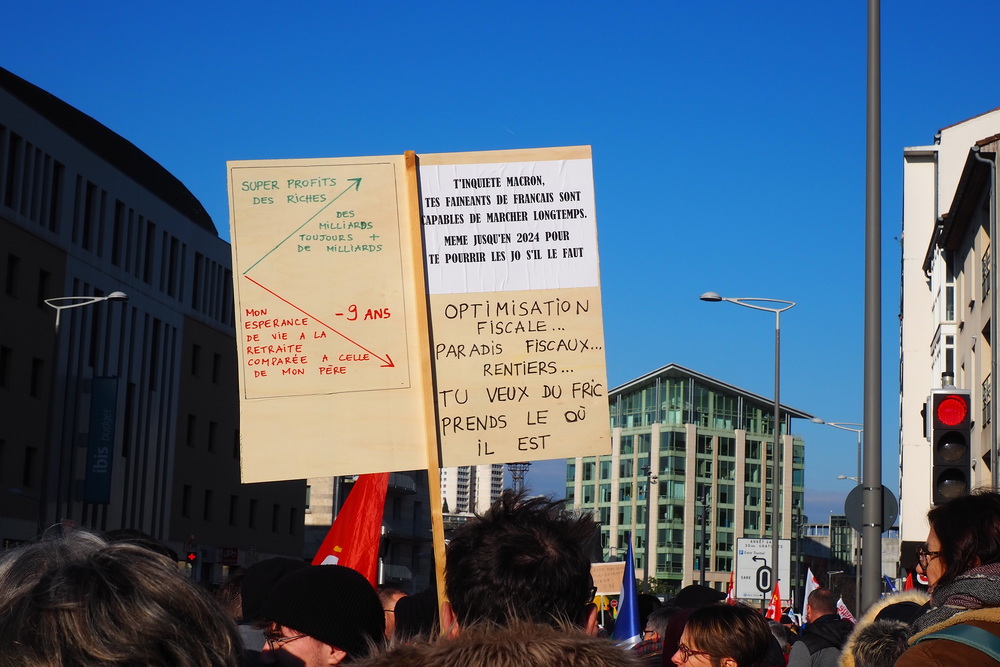 SUPER PROFITS
DES RICHES
DES
MILLIARDS
TOUJOURS +
DE MILLIARDS
MON
ESPERANCE
DE VIE A LA
RETRAITE
COMPARÉE A CELLE
DE MON PÈRE
-9 ANS
T'INQUIETE MACRON,
TES FAINEANTS DE FRANCAIS SONT
CAPABLES DE MARCHER LONGTEMPS.
MEME JUSQU'EN 2024 POUR
TE POURRIR LES JO S'IL LE FAUT
OPTIMISATION
FISCALE...
PARADIS FISCAUX...
RENTIERS...
TU VEUX DU FRIC
PRENDS LE OÙ
IL EST
ibis budget
GARE